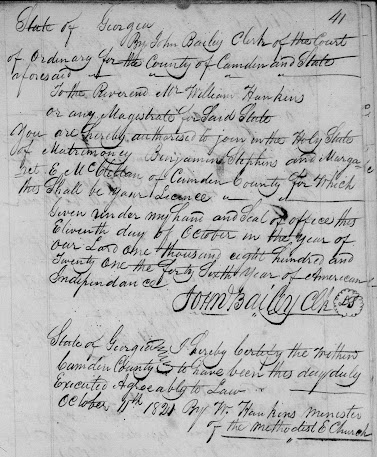 41
State of Georgia
By John Bailey Clerk of the Court
of Ordinary for the County of Camden and State
aforesaid
To the Reverend Mr William Hankins
or any Magistrate for Said State
You are hereby authorised to join in the Holy State
of Matrimony Benjamin Hopkins and Marga-
ret E. McClellan of Camden County for Which
this Shall be your Licence
Given under my hand and Seal of office this
Eleventh day of October in the Year of
Our Lord One thousand eight hundred and
Twenty One the forty Sixth Year of American
Independance
John Bailey Clk
LS
State of Georgia
Camden County
I hereby Certify the Within
to have been this day duly
Executed Agreeably to Law
October 11th 1821 By W. Hankins Minister
of the Methodist E Church